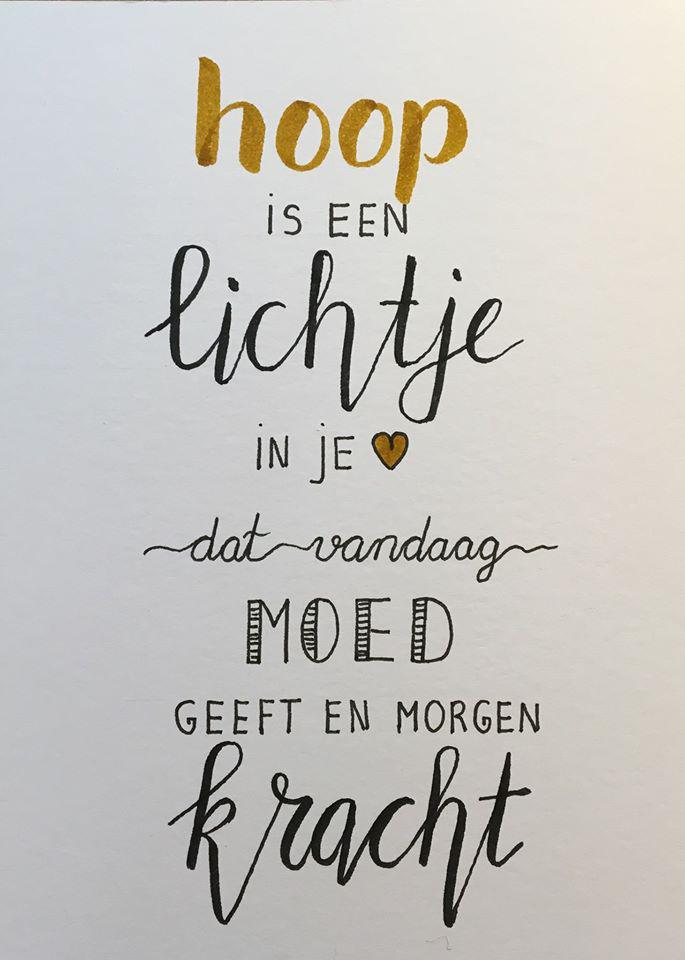 hoop
is EEN
lichtje
iN jE ♥
dat vandaag
MOED
GEEFT EN MORGEN
kracht